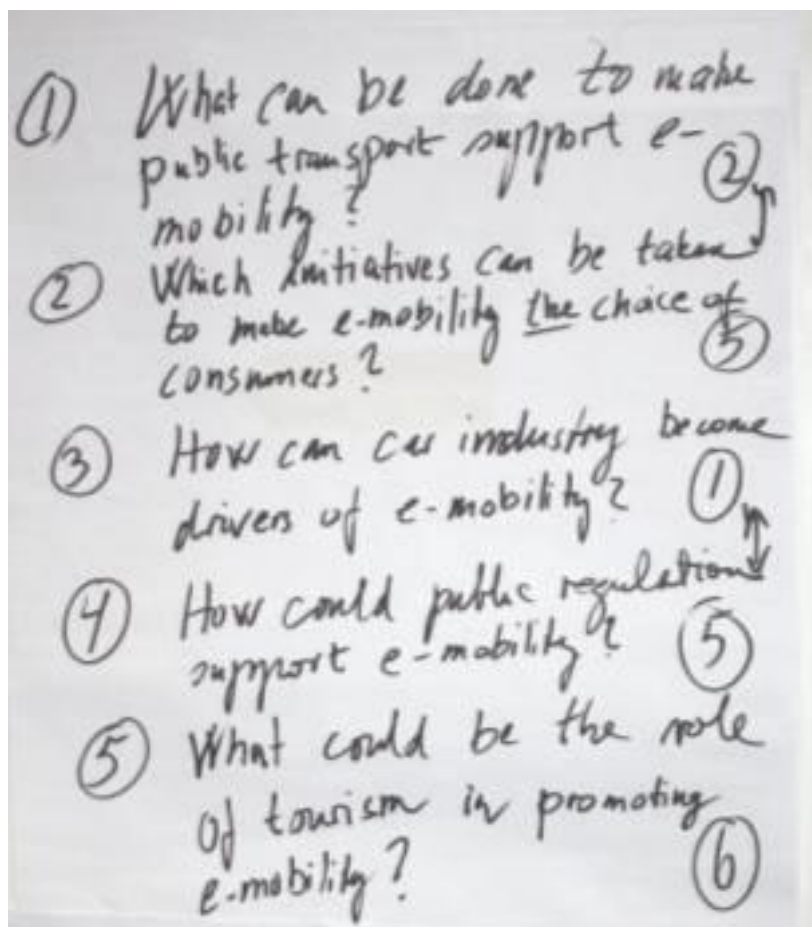 ① What can be done to make
public transport support e-
mobility? ②
② Which initiatives can be taken
to make e-mobility the choice of
consumers? ⑤
③ How can car industry become
drivers of e-mobility? ①
④ How could public regulations
support e-mobility? ⑤
⑤ What could be the role
of tourism in promoting
e-mobility? ⑥